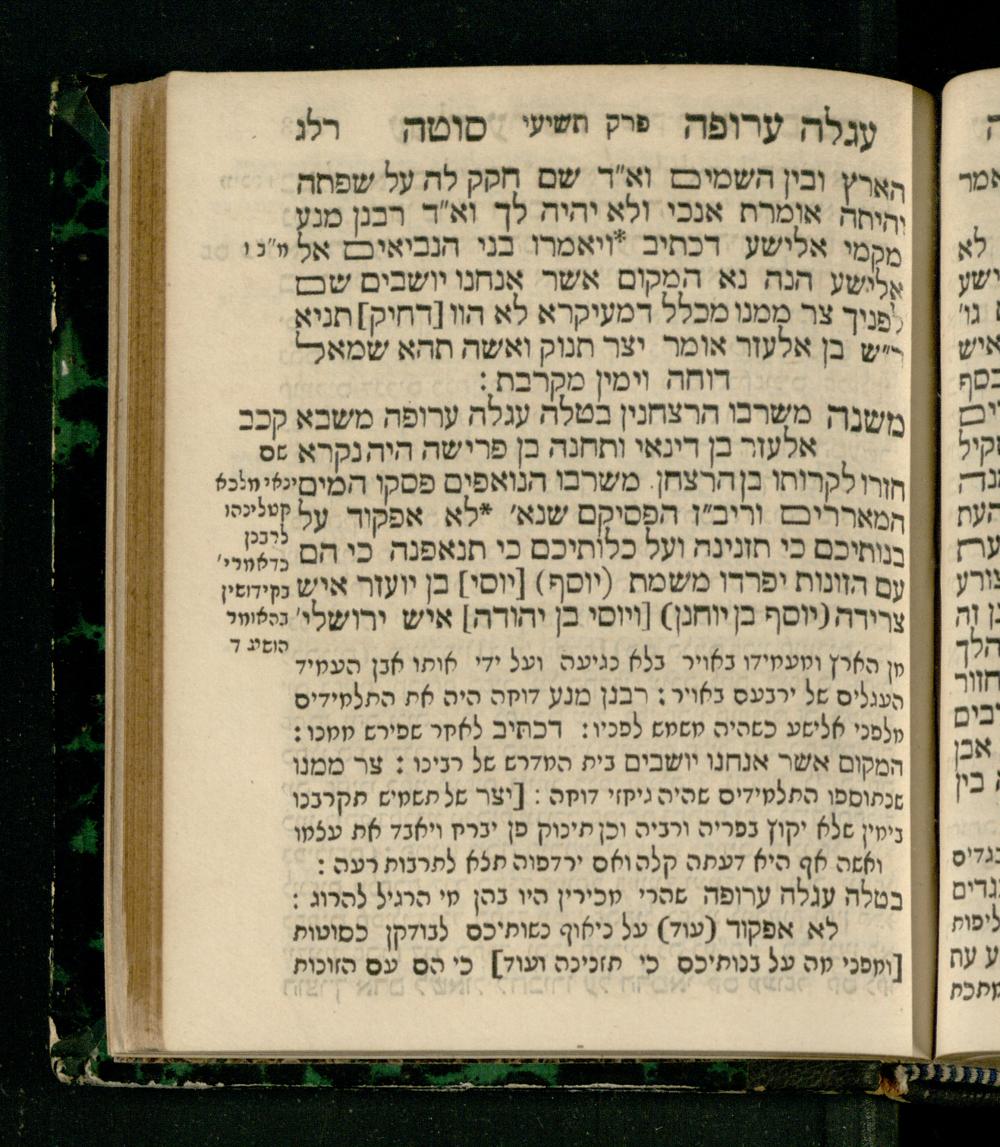 עגלה ערופה פרק תשיעי סוטה רלג
הארץ ובין השמים וא"ד שם חקק לה על שפתה
והיתה אומרת אנכי ולא יהיה לך וא"ד רבנן מנע
מקמי אלישע דכתיב *ויאמרו בני הנביאים אל
מ"ב ו
אלישע הנה נא המקום אשר אנחנו יושבים שם
לפניך צר ממנו מכלל דמעיקרא לא הוו [דחיק] תניא
ר"ש בן אלעזר אומר יצר תנוק ואשה תהא שמאל
דוחה וימין מקרבת :
משנה משרבו הרצחנין בטלה עגלה ערופה משבא קכב
אלעזר בן דינאי ותחנה בן פרישה היה נקרא שם
חזרו לקרותו בן הרצחן. משרבו הנואפים פסקו המים
המאררים וריב"ז הפסיקם שנא' *לא אפקוד על
בנותיכם כי תזנינה ועל כלותיכם כי תנאפנה כי הם
עם הזונות יפרדו משמת (יוסף) [יוסי] בן יועזר איש
צרידה (יוסף בן יוחנן) [ויוסי בן יהודה] איש ירושלי'
ינאי מלכא
קטלינהו
לרבנן
כדאמרי'
בקידושין
בהאומר
הושע ד
מן הארץ ומעמידו באויר בלא נגיעה ועל ידי אותו אבן העמיד
העגלים של ירבעם באויר : רבנן מנע דוחה היה את התלמידים
מלפני אלישע כשהיה משמש לפניו : דכתיב לאחר שפירש ממנו :
המקום אשר אנחנו יושבים בית המדרש של רבינו : צר ממנו
שנתוספו התלמידים שהיה גיחזי דוחה : [יצר של תשמיש תקרבנו
בימין שלא יקוץ בפריה ורביה וכן תינוק פן יברח ויאבד את עצמו
ואשה אף היא דעתה קלה ואם ירדפוה תצא לתרבות רעה :
בטלה עגלה ערופה שהרי מכירין היו בהן מי הרגיל להרוג :
לא אפקוד (עוד) על ניאוף נשותיכם לבודקן כסוטות
[ומפני מה על בנותיכם כי תזנינה ועוד] כי הם עם הזונות